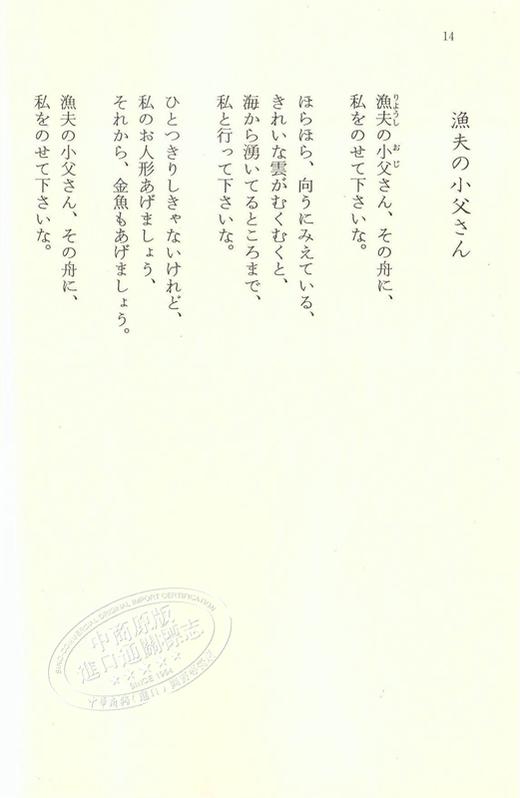 14
漁夫の小父さん
漁夫の小父さん、その舟に、
りようし
おじ
私をのせて下さいな。
ほらほら、向うにみえている、
きれいな雲がむくむくと、
海から湧いてるところまで、
私と行って下さいな。
ひとつきりしきゃないけれど、
私のお人形あげましょう、
それから、金魚もあげましょう。
漁夫の小父さん、その舟に、
私をのせて下さいな。
中商原版
進口通關標志
SINCE 1954